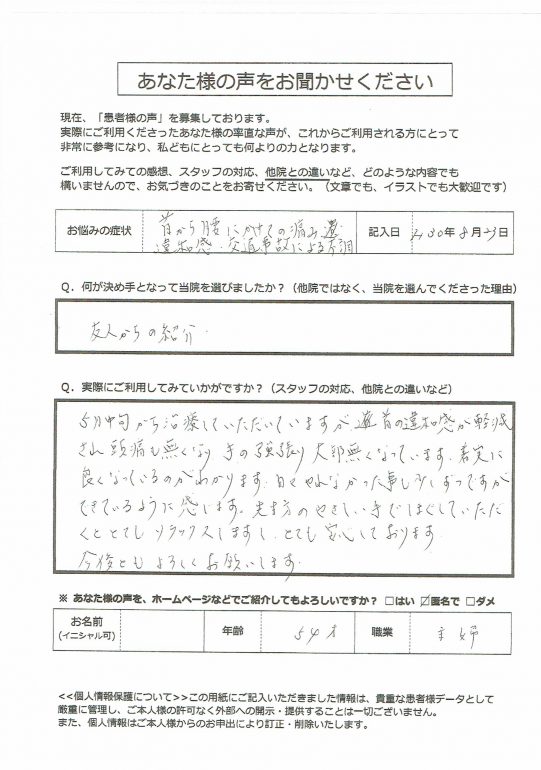 あなた様の声をお聞かせください
現在、「患者様の声」を募集しております。
実際にご利用くださったあなた様の率直な声が、これからご利用される方にとって
非常に参考になり、私どもにとっても何よりの力となります。
ご利用してみての感想、スタッフの対応、他院との違いなど、どのような内容でも
構いませんので、お気づきのことをお寄せください。（文章でも、イラストでも大歓迎です）
お悩みの症状
首から腰にかけての痛み
違和感・交通事故による不調
記入日
H30年8月23日
Q．何が決め手となって当院を選びましたか？（他院ではなく、当院を選んでくださった理由）
友人からの紹介
Q．実際にご利用してみていかがですか？（スタッフの対応、他院との違いなど）
5月中旬から治療していただいていますが首の違和感が軽減
され頭痛も無くなり手の強張り大部無くなっています。着実に
良くなっているのがわかります。日々やれなかった事も少しずつですが
できているように感じます。先生方のやさしい手でほぐしていただ
くととてもリラックスしますし、とても安心しております。
今後ともよろしくお願いします。
※ あなた様の声を、ホームページなどでご紹介してもよろしいですか？ □はい ☑匿名で □ダメ
お名前
(イニシャル可)
年齢
54才
職業
主婦
<<個人情報保護について>>この用紙にご記入いただきました情報は、貴重な患者様データとして
厳重に管理し、ご本人様の許可なく外部への開示・提供することは一切ございません。
また、個人情報はご本人様からのお申出により訂正・削除いたします。